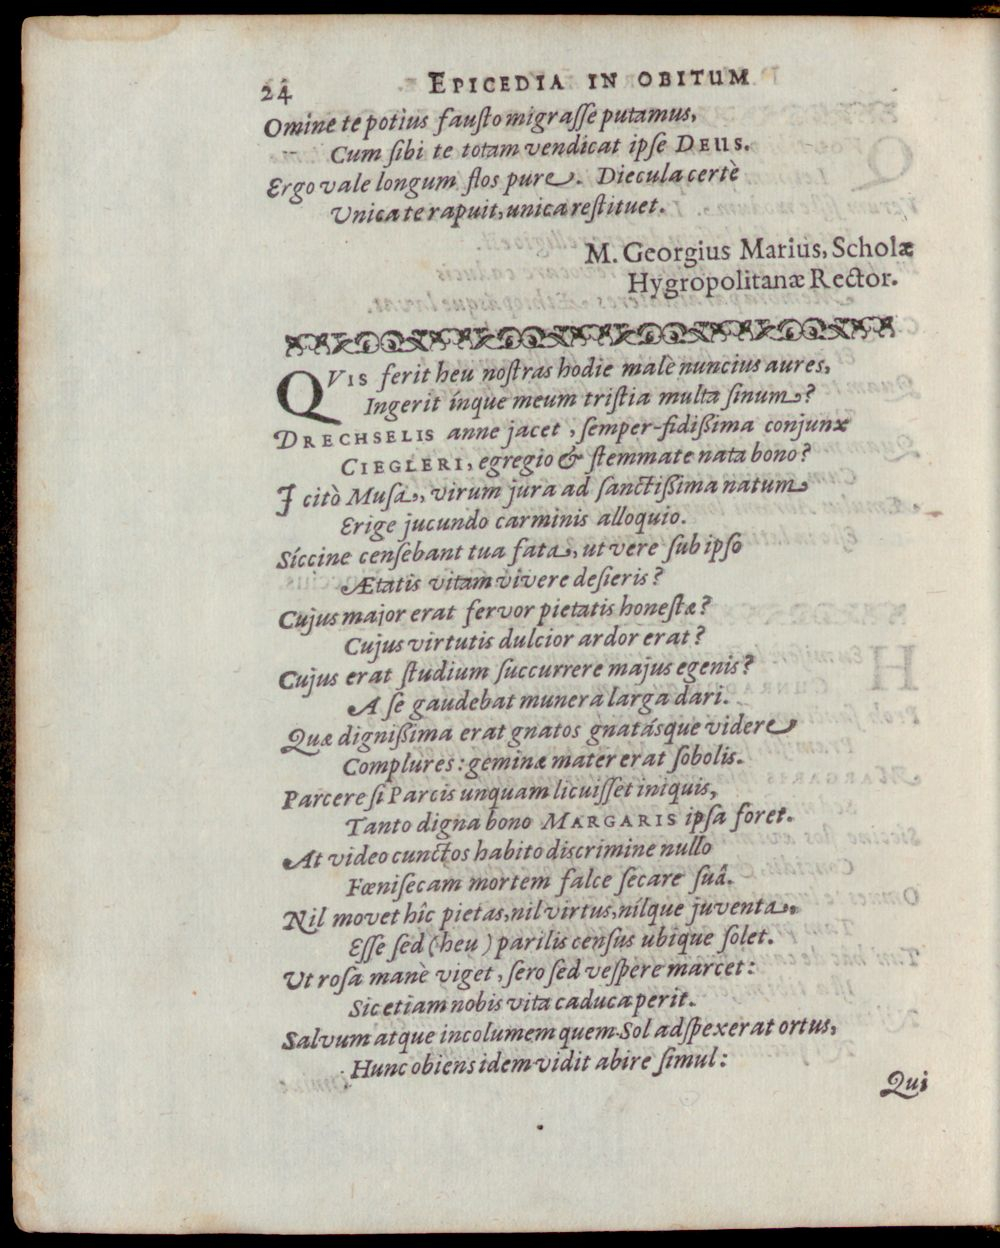 24 EPICEDIA IN OBITUM
Omine te potius fausto migrasse putamus,
Cum sibi te totam vendicat ipse DEUS.
Ergo vale longum flos pure. Diecula certè
Unica te rapuit, unica restituet.
M. Georgius Marius, Scholæ
Hygropolitanæ Rector.
QVIS ferit heu nostras hodie malè nuncius aures,
Ingerit ínque meum tristia multa sinum?
DRECHSELIS anne jacet, semper-fidißima conjunx
CIEGLERI, egregio & stemmate nata bono?
I citò Musa, virum jura ad sanctißima natum
Erige jucundo carminis alloquio.
Síccine censebant tua fata, ut vere sub ipso
Ætatis vitam vivere desieris?
Cujus major erat fervor pietatis honestæ?
Cujus virtutis dulcior ardor erat?
Cujus erat studium succurrere majus egenis?
A se gaudebat munera larga dari.
Quæ dignißima erat gnatos gnatásque videre
Complures: geminæ mater erat sobolis.
Parcere si Parcis unquam licuisset iniquis,
Tanto digna bono MARGARIS ipsa foret.
At video cunctos habito discrimine nullo
Fœnisecam mortem falce secare suâ.
Nil movet hîc pietas, nil virtus, nílque juventa,
Esse sed (heu) parilis census ubique solet.
Ut rosa manè viget, sero sed vespere marcet:
Sic etiam nobis vita caduca perit.
Salvum atque incolumem quem Sol adspexerat ortus,
Hunc obiens idem vidit abire simul:
Qui